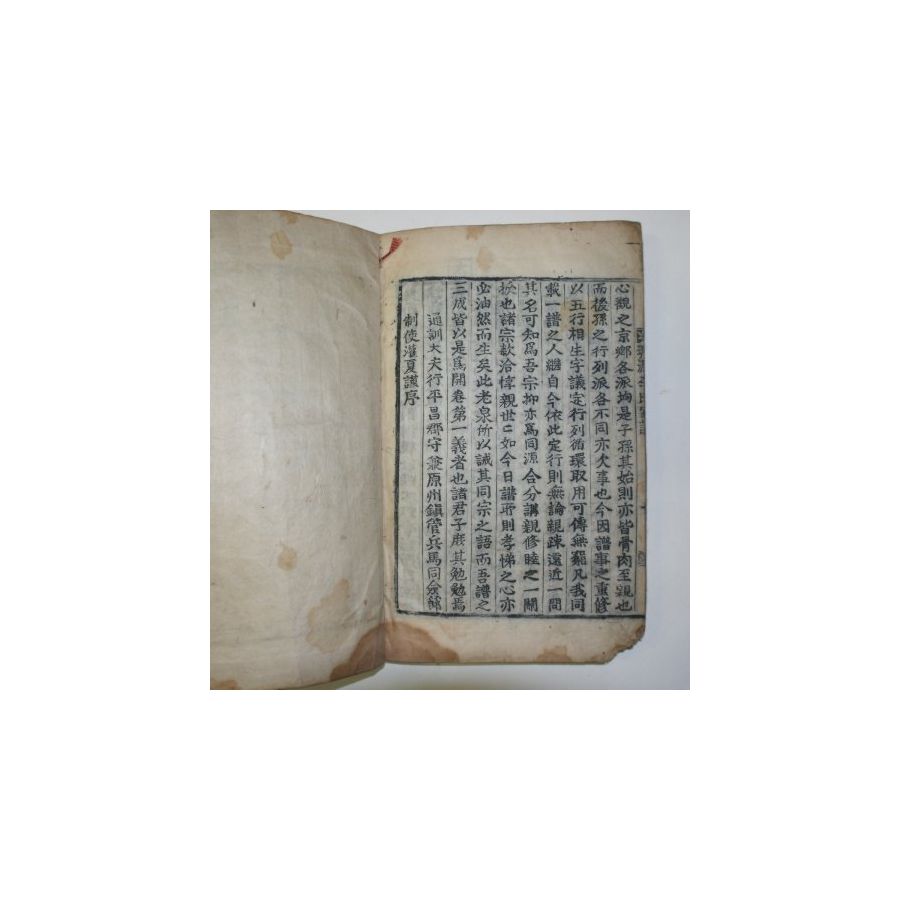 心觀之京鄉各派均是子孫其始則亦皆骨肉至親也
而後孫之行列派各不同亦欠事也今因譜事之重修
以五行相生字議定行列循環取用可傳無窮凡我同
載一譜之人繼自今依此定行則無論親疎遠近一聞
其名可知爲吾宗抑亦爲同源合分講親修睦之一關
也諸宗歡洽惇親世二如今日譜所則孝悌之心亦
必油然而生矣此老泉所以誠其同宗之語而吾譜之
三成皆以是爲開卷第一義者也諸君子庶其勉勉焉
通訓大夫行平昌郡守兼原州鎭管兵馬同僉節
制使灌夏謹序